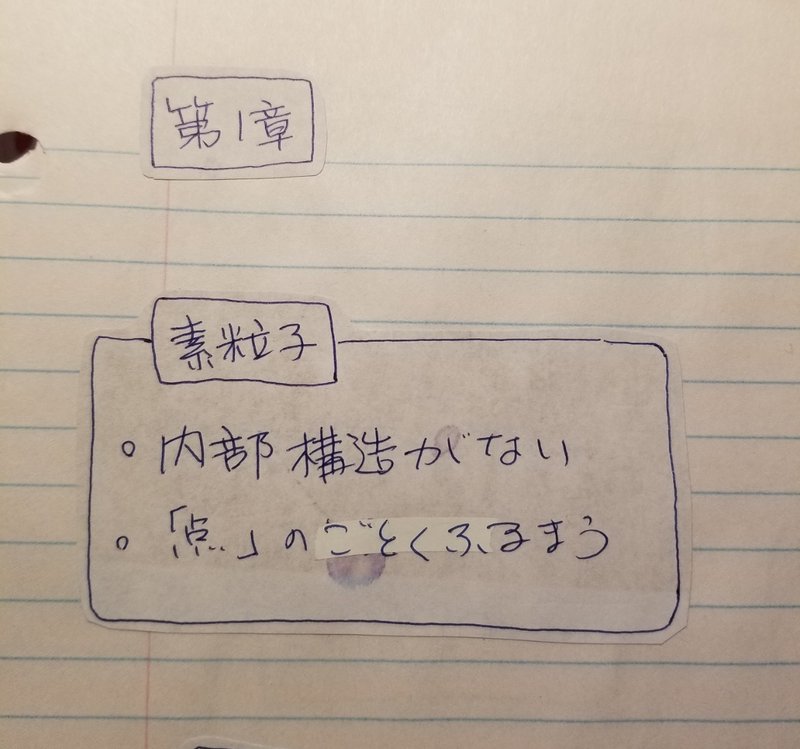 第1章
素粒子
○ 内部構造がない
○ 「点」のごとくふるまう